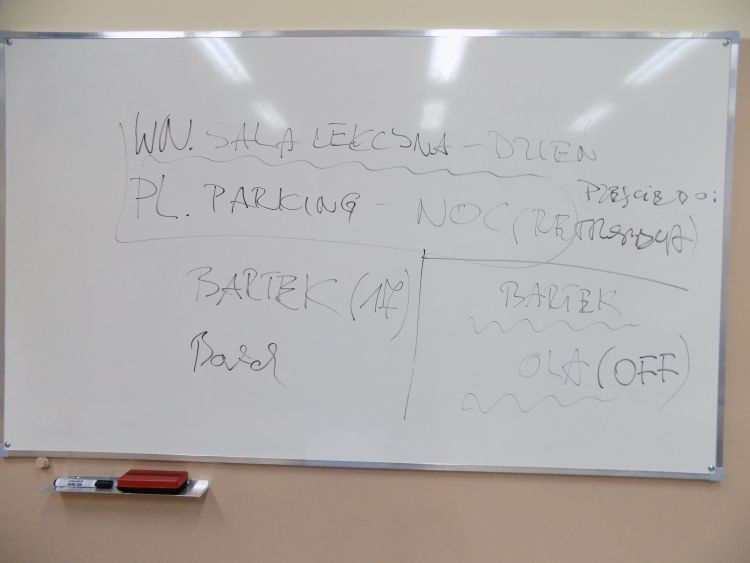 WN. SALA LEKCYJNA - DZIEŃ
PL. PARKING - NOC (RETROSPEKCJA)
PRZEJŚCIE DO:
BARTEK (17)
BARTEK
OLA (OFF)